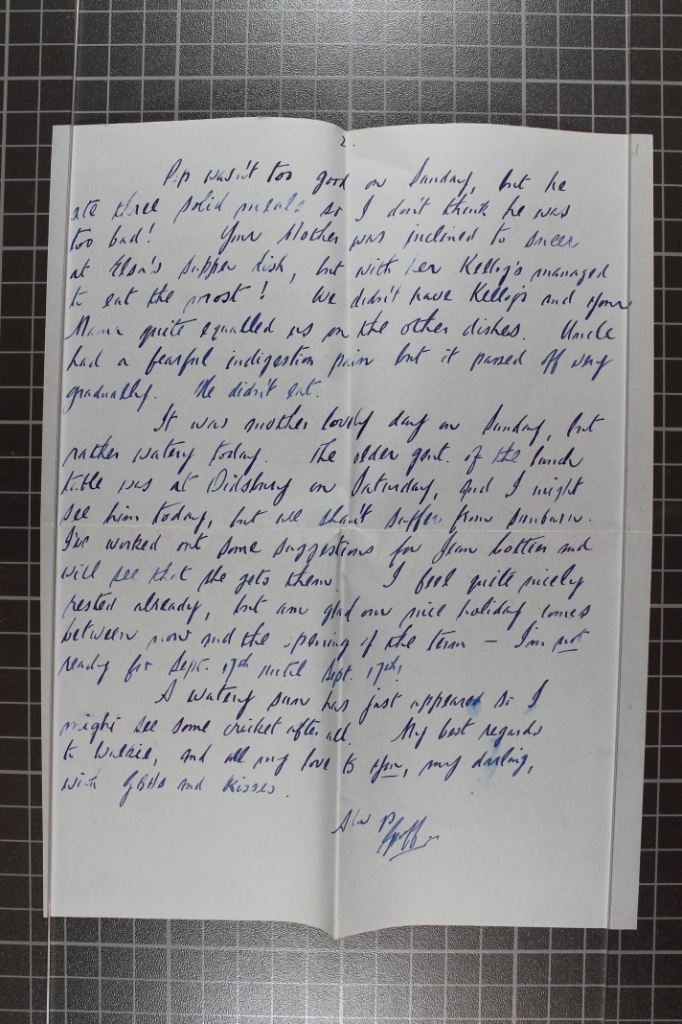 2.
Pip wasn't too good on Sunday, but he
ate three solid meals so I don't think he was
too bad! Your Mother was inclined to sneer
at Elsa's supper dish, but with her Kellog's managed
to eat the most! We didn't have Kellogs and your
Mama quite equalled us on the other dishes. Uncle
had a fearful indigestion pain but it passed off very
gradually. He didn't eat.
It was another lovely day on Sunday, but
rather watery today. The older gent. of the lunch
table was at Didsbury on Saturday, and I might
see him today, but we shan't suffer from sunburn.
I've worked out some suggestions for Jean and
will see that she gets them. I feel quite nicely
rested already, but am glad our nice holiday comes
between now and the opening of the term — I'm not
ready for Sept. 17th until Sept. 17th!
A watery sun has just appeared so I
might see some cricket after all. My best regards
to Walkie, and all my love to you, my darling,
with GBHs and kisses.